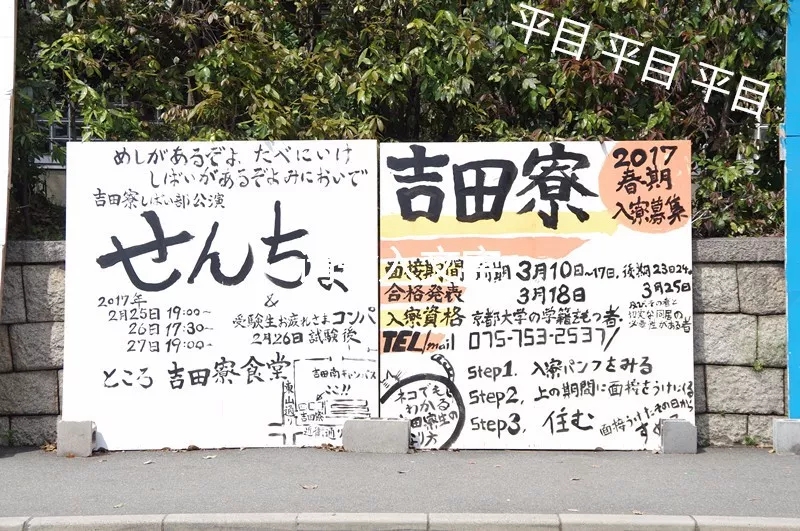 平目 平目 平目
めしがあるぞよ、たべにいけ
しばいがあるぞよみにおいで
吉田寮しばい部公演
せんちょ
2017年
2月25日 19:00~
26日 17:30~
27日 19:00~
&
受験生お疲れさまコンパ
2月26日 試験後
ところ 吉田寮食堂
吉田南キャンパス
ここ!!
吉田寮
東山通り
近衛通り
吉田寮
2017
春期
入寮募集
面接期間 前期 3月10日~17日、後期 23日24日
合格発表 3月18日 3月25日
入寮資格 京都大学の学籍をもつ者
TEL/mail 075-753-2537/
ネコでも
わかる
吉田寮生の
なり方
Step1. 入寮パンフをみる
Step2. 上の期間に面接をうけにくる
Step3. 住む